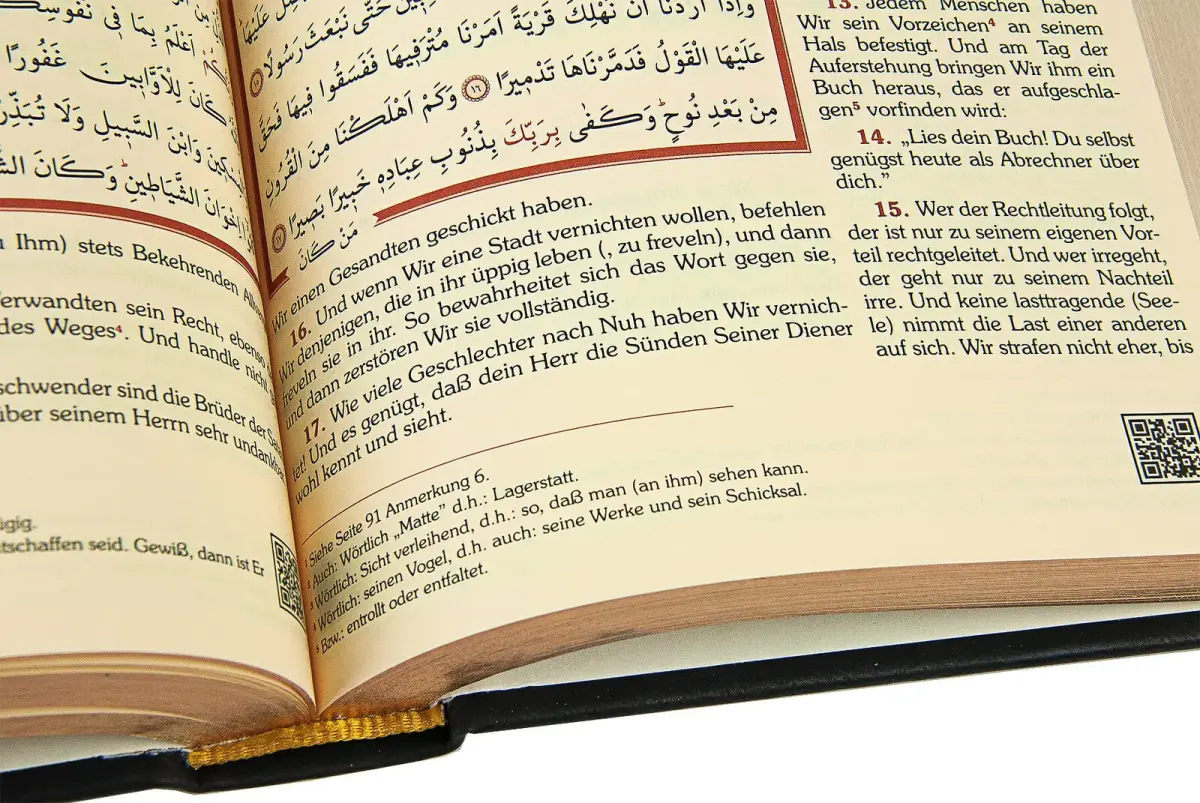 أَعْلَمُ بِمَا فِي نُفُوسِكُمْ
كَانَ لِلْأَوَّابِينَ غَفُورًا
وَابْنَ السَّبِيلِ وَلَا تُبَذِّرْ
إِخْوَانَ الشَّيَاطِينِ وَكَانَ
Ihm) stets Bekehrenden
erwandten sein Recht, ebenso
des Weges⁴. Und handle nicht
schwender sind die Brüder der
über seinem Herrn sehr undankbar
gig.
tschaffen seid. Gewiß, dann ist Er
حَتَّى نَبْعَثَ رَسُولًا ١٥
وَإِذَا أَرَدْنَا أَنْ نُهْلِكَ قَرْيَةً أَمَرْنَا مُتْرَفِيهَا فَفَسَقُوا فِيهَا فَحَقَّ
عَلَيْهَا الْقَوْلُ فَدَمَّرْنَاهَا تَدْمِيرًا ١٦ وَكَمْ أَهْلَكْنَا مِنَ الْقُرُونِ
مِنْ بَعْدِ نُوحٍ وَكَفَى بِرَبِّكَ بِذُنُوبِ عِبَادِهِ خَبِيرًا بَصِيرًا ١٧
مَنْ كَانَ
Wir einen Gesandten geschickt haben.
16. Und wenn Wir eine Stadt vernichten wollen, befehlen
Wir denjenigen, die in ihr üppig leben (, zu freveln), und dann
freveln sie in ihr. So bewahrheitet sich das Wort gegen sie,
und dann zerstören Wir sie vollständig.
17. Wie viele Geschlechter nach Nuh haben Wir vernich-
tet! Und es genügt, daß dein Herr die Sünden Seiner Diener
wohl kennt und sieht.
¹ Siehe Seite 91 Anmerkung 6.
² Auch: Wörtlich „Matte” d.h.: Lagerstatt.
³ Wörtlich: Sicht verleihend, d.h.: so, daß man (an ihm) sehen kann.
⁴ Wörtlich: seinen Vogel, d.h. auch: seine Werke und sein Schicksal.
⁵ Bzw.: entrollt oder entfaltet.
13. Jedem Menschen haben
Wir sein Vorzeichen⁴ an seinem
Hals befestigt. Und am Tag der
Auferstehung bringen Wir ihm ein
Buch heraus, das er aufgeschla-
gen⁵ vorfinden wird:
14. „Lies dein Buch! Du selbst
genügst heute als Abrechner über
dich.”
15. Wer der Rechtleitung folgt,
der ist nur zu seinem eigenen Vor-
teil rechtgeleitet. Und wer irregeht,
der geht nur zu seinem Nachteil
irre. Und keine lasttragende (See-
le) nimmt die Last einer anderen
auf sich. Wir strafen nicht eher, bis